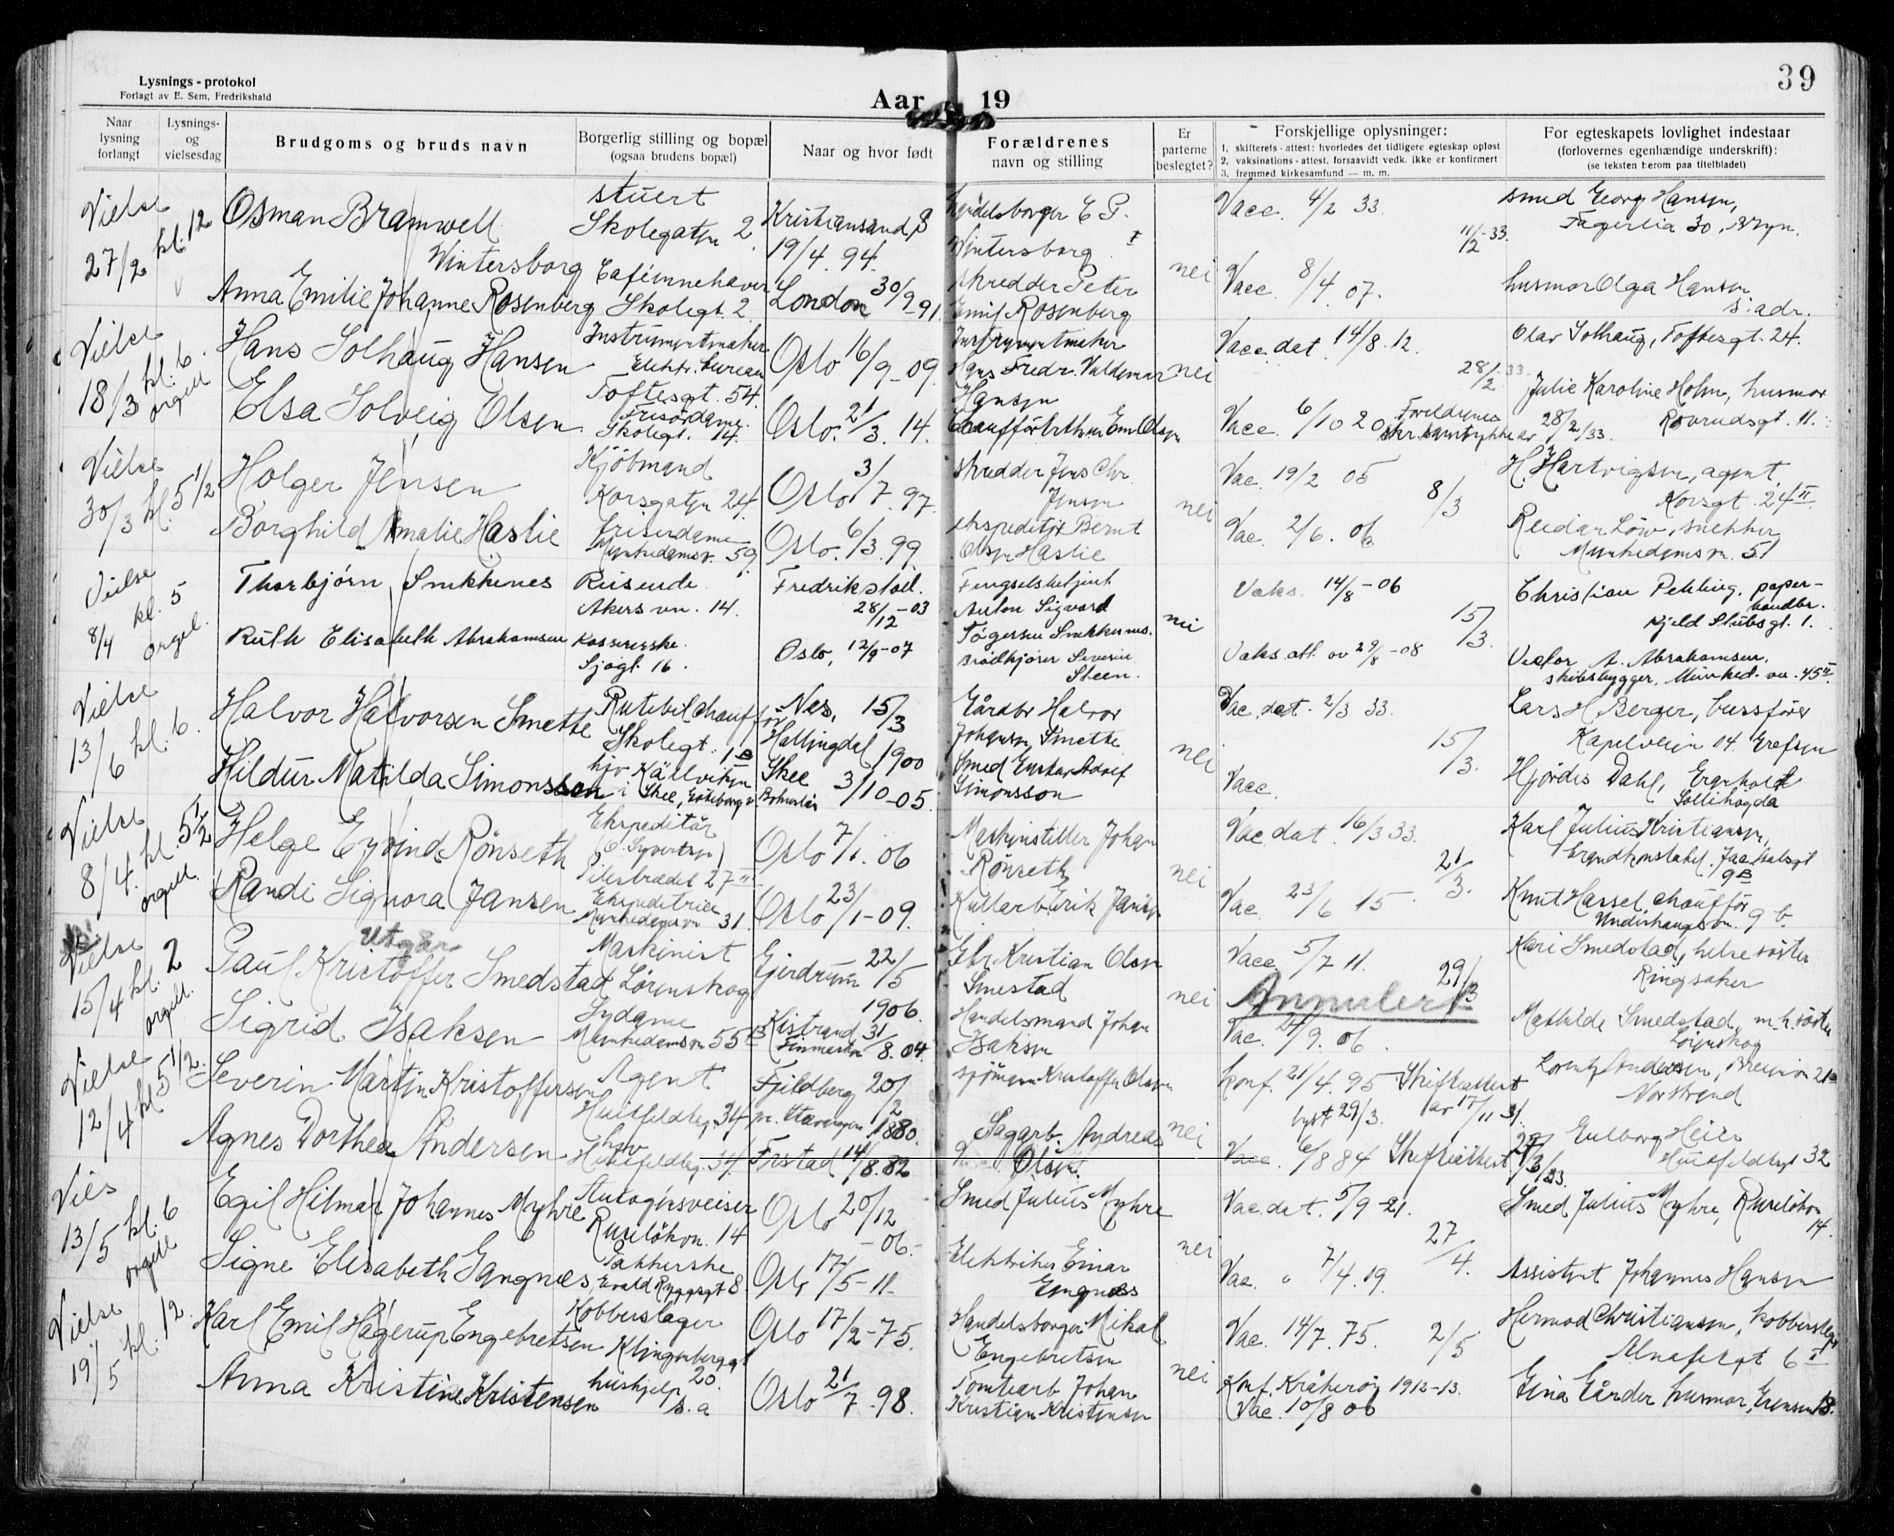 39
Lysnings-protokol
Forlagt av E. Sem, Fredrikshald
Aar 19
Naar lysning forlangt
Lysnings- og vielsesdag
Brudgoms og bruds navn
Borgerlig stilling og bopæl (ogsaa brudens bopæl)
Naar og hvor født
Forældrenes navn og stilling
Er parterne beslegtet?
Forskjellige oplysninger:
1, skifterets-attest: hvorledes det tidligere egteskap opløst
2, vaksinations-attest, forsaavidt vedk. ikke er konfirmert
3, fremmed kirkesamfund — m. m.
For egteskapets lovlighet indestaar
(forlovernes egenhændige underskrift):
(se teksten herom paa titelbladet)
Vielse 27/2 kl. 12
Osman Bramwell Wintersborg
stuert Skolegaten 2
Kristiansand S 19/4. 94.
E P. Wintersborg
nei
Vacc. 4/2 33.
11/2-33.
smed Georg Hansen, Fagerlia 30, Bryn.
Anna Emilie Johanne Rosenberg
Caféinnehaver Skolegt. 2.
London 30/9 91.
skredder Peter Emil Rosenberg
Vacc. 8/4 07.
husmor Olga Hansen s. adr.
Vielse 18/3 kl. 6. orgell
Hans Solhaug Hansen
Instrumentmaker Elektr. bureau Toftesgt. 54.
Oslo 16/9-09.
Instrumentmaker Hans Fredr. Valdemar Hansen
nei
Vacc. dat. 14/8. 12.
28/2-33.
Olav Solhaug, Toftesgt. 24.
Elsa Solveig Olsen
Frisördame. Skolegt. 14.
Oslo. 21/3. 14.
Chaufför Arthur Em. Olsen
Vacc. 6/10 20
Foreldrenes skr. samtykke av 28/2/33.
Julie Karoline Holm, husmor Rosrudsgt. 11.
Vielse 30/3 kl. 5 1/2
Holger Jensen
Kjöbmand Korsgaten 24.
Oslo 3/7. 97.
skredder Jens Chr. Jensen
nei
Vac. 19/2 05
8/3
H. Hartvigsen, agent, Korsgt. 24 II.
Borghild Amalie Haslie
Friserdame Munkedamsv. 59.
Oslo. 6/3. 99.
ekspeditør Bernt Olsen Haslie
Vac. 2/6. 06.
Reidar Löw, snekker Munkedamsvn. 51
Vielse 8/4 kl. 5 orgel.
Thorbjørn Snekkenes
Reisende. Akersvn. 14.
Fredrikstad. 28/12-03
Fengselsbetjent Anton Sigvard Tögersen Snekkenes.
nei
Vaks. 14/8-06
15/3.
Christian Pekking, papirhandler. Kjeld Stubsgt. 1.
Ruth Elisabeth Abrahamsen
Kassererske. Sjøgt. 16.
Oslo, 12/9-07
Brødkjører Severin Steen.
Vaks. att. av 29/8-08
Victor A. Abrahamsen. skibsbygger, Munked. vn. 45 II.
Vielse 13/6 kl. 6.
Halvor Halvorsen Smette
Rutebilchauffør Skolegt. 1 B
Nes, Hallingdal 15/3 1900
Gårdbr Halvor Johansen Smette
nei
Vac. dat. 2/3 33.
15/3.
Lars H. Berger, bussfører Kapelveien 04. Grefsen
Hildur Matilda Simonsson
hjv. Källviken i Skee, Göteborg
Skee Bohuslän 3/10-05.
Smed Gustav Adolf Simonsson
Vacc.
Hjördis Dahl, Sollihøgda
Vielse 8/4. kl. 5 1/2 orgell.
Helge Eyvind Rönseth
Ekspeditör (O. Syvertsen) Pilestrædet 27 II
Oslo 7/1. 06
Maskinstiller Johan Rönseth
nei
Vac. dat. 16/3 33.
21/3.
Karl Julius Kristiansen,
Randi Signora Jansen
Ekspeditrice Munkedamsvn 31.
Oslo 23/1-09.
Kullarb. Erik Jansen
Vac. 23/6 15
Knut Hassel chauffør Underhaugsvn. 9 b.
Vielse 15/4 kl. 2 orgell.
Utgår
Paul Kristoffer Smedstad
Maskinist Lørenskog
Gjerdrum 22/5 1906.
Gbr. Kristian Olsen Smestad
nei
Vacc. 5/7 11.
29/3
Annulert
Kari Smedstad, helsesöster Ringsaker
Sigrid Isaksen
Sydame Munkedamsvn 55 B
Kistrand Finmarken 31/8. 04.
Handelsmand Johan Isaksen
Vac. 24/9. 06.
Mathilde Smedstad, m.h.söster Lörenskog
Vielse 12/4 kl 5 1/2.
Severin Martin Kristoffersen
Agent Huitfeldtsg. 34
Fjeldberg pr. Stavanger 20/2 1880.
Kristoffer Olsen
nei
Konf. 21/4. 95 Skifteattest av 17/11 31.
lyst 29/3.
Nordstrand
Agnes Dorthea Andersen
hjv Huitfeldtsg. 34.
Frstad 14/8. 82
Sagarb. Andreas Olsen
Vacc. 6/8 84 Skifteattest 29/3/33.
Eulborg Heier Huitfeldtsgt 32
Viels 13/5 kl. 6 orgell
Egil Hilmar Johannes Myhre
Autogensveiser Ruseløkvn. 14
Oslo 20/12-06.
Smed Julius Myhre
nei
Vac. dat. 5/9-21.
27/4.
Smed Julius Myhre, Ruseløkvn 14.
Signe Elisabeth Gangnæs
Pakkerske Evald Ryggsgt 8.
Oslo 17/5-11.
Elektriker Einar Engnæs
Vac. " 7/4. 19.
Assistent Johannes Hansen
Vielse 19/5 kl. 12.
Karl Emil Hagerup Engebretsen
Kobberslager Klingenberggt 20.
Oslo 17/2-75.
Handelsborger Mikal Engebretsen
nei
Vac. 14/7. 75.
2/5
Hermod Christiansen, kobberslager Alnafetgt 6 I
Anna Kristine Kristensen
hushjelp s. a
Oslo 21/7-98.
Tomtearb. Johan Kristian Kristensen
Konf. Kråkerøy 1912-13.
Vac. 10/8 06
Gina Gårder husmor, Grensen 18.